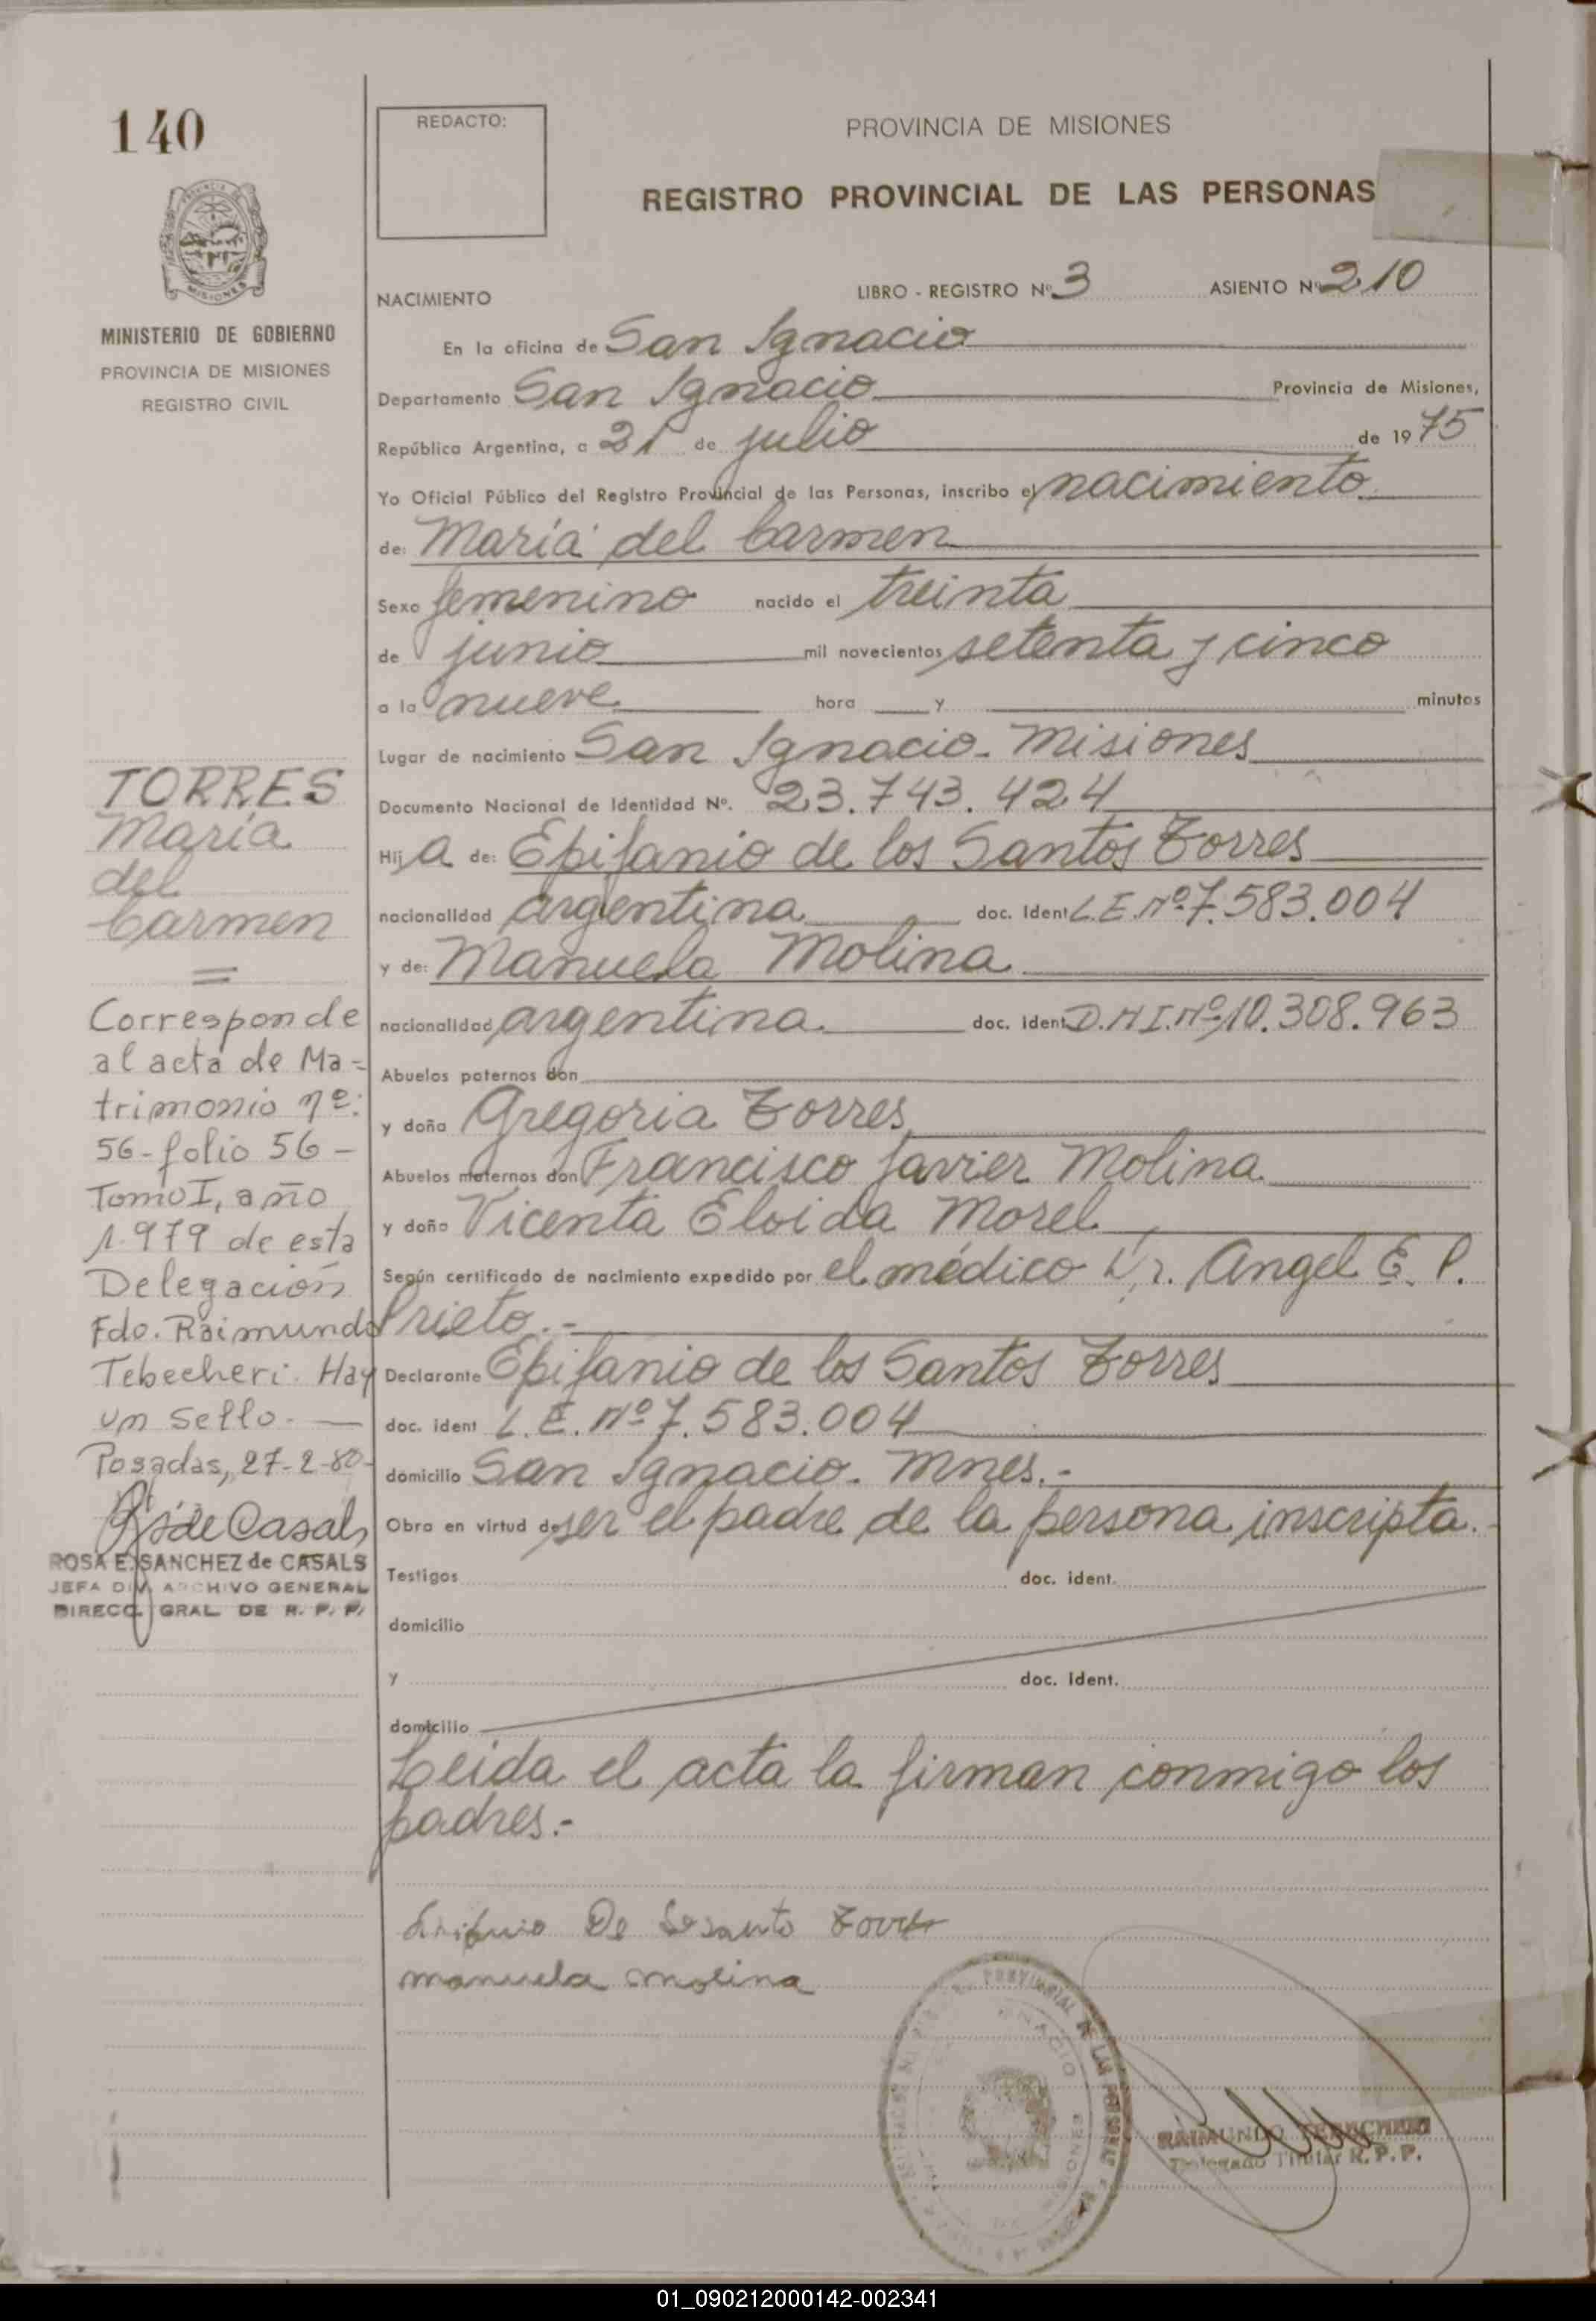 140
REDACTO:
PROVINCIA DE MISIONES
REGISTRO PROVINCIAL DE LAS PERSONAS
MISIONES
MINISTERIO DE GOBIERNO
PROVINCIA DE MISIONES
REGISTRO CIVIL
NACIMIENTO LIBRO - REGISTRO Nº 3 ASIENTO Nº 210
En la oficina de San Ignacio
Departamento San Ignacio Provincia de Misiones,
República Argentina, a 21 de julio de 1975
Yo Oficial Público del Registro Provincial de las Personas, inscribo el nacimiento
de: María del Carmen
Sexo femenino nacido el treinta
de junio mil novecientos setenta y cinco
a la nueve hora y minutos
Lugar de nacimiento San Ignacio - Misiones
Documento Nacional de Identidad Nº. 23.743.424
Hija de: Epifanio de los Santos Torres
nacionalidad argentina doc. Ident L.E. Nº 7.583.004
y de: Manuela Molina
nacionalidad argentina. doc. ident D.N.I. Nº 10.308.963
Abuelos paternos don
y doña Gregoria Torres
Abuelos maternos don Francisco Javier Molina.
y doña Vicenta Eloida Morel
Según certificado de nacimiento expedido por el médico Dr. Angel E. P.
Prieto.-
Declarante Epifanio de los Santos Torres
doc. ident L.E. Nº 7.583.004
domicilio San Ignacio. Mnes.-
Obra en virtud de ser el padre de la persona inscripta.-
Testigos doc. ident.
domicilio
y doc. ident.
domicilio
Leida el acta la firman conmigo los
padres.-
TORRES
María
del
Carmen
=
Corresponde
al acta de Ma=
trimonio nº:
56 - folio 56 -
Tomo I, año
1.979 de esta
Delegación
Fdo. Raimundo
Tebecheri. Hay
un sello. —
Posadas, 27-2-80-
ROSA E. SANCHEZ de CASALS
JEFA DIV. ARCHIVO GENERAL
DIRECC. GRAL. DE R. P. P.
De Torres
manuela molina
PROVINCIAL DE LAS PERSONAS
RAIMUNDO
Delegado Titular R. P. P.
01_090212000142-002341